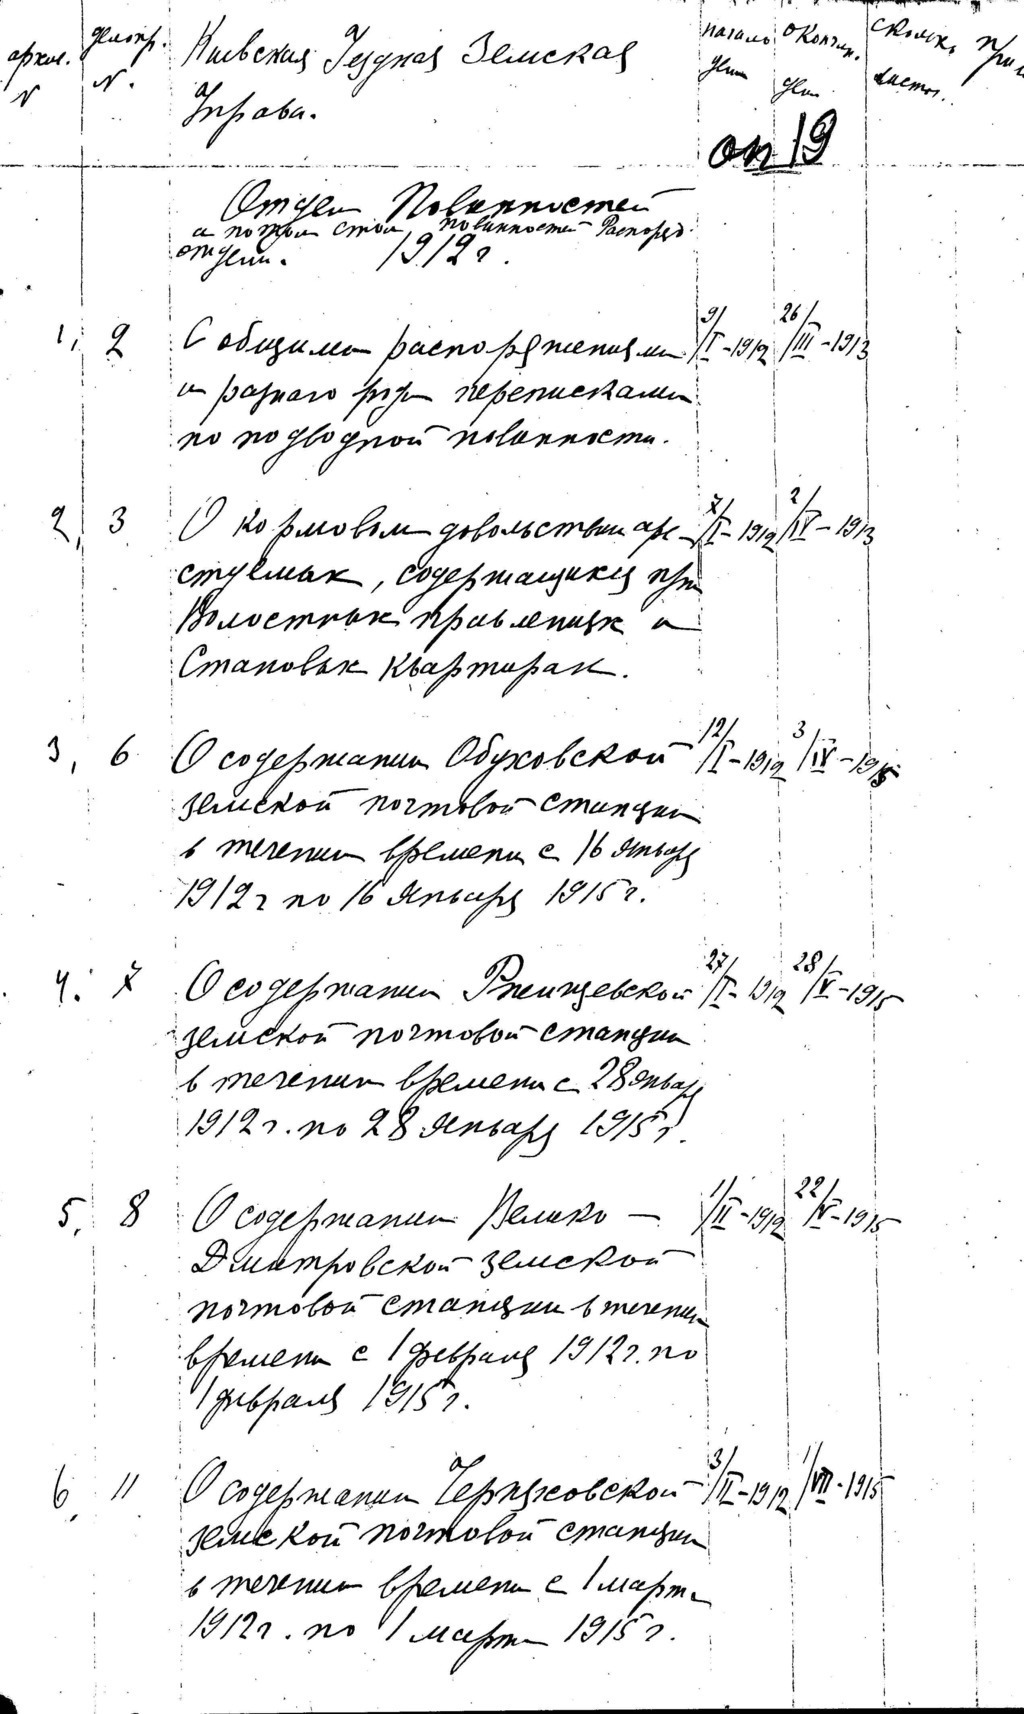 архив. № делопр. № Киевская Уездная Земская начало дела окончан. дела сколько листов. прим
Управа.
оп 19
Отдел Повинностей
а потом стол повинностей Распоряд.
отдела. 1912 г.
1, 2 С общими распоряжениями 9/I-1912 26/III-1913
и разного рода переписками
по подводной повинности.
2, 3 О кормовом довольствии аре- 7/I-1912 2/IV-1913
стуемых, содержащихся при
Волостных правлениях и
Становых квартирах.
3, 6 О содержании Обуховской 12/I-1912 3/IV-1915
земской почтовой станции
в течении времени с 16 января
1912 г по 16 января 1915 г.
4. 7 О содержании Ржищевской 27/I-1912 28/V-1915
земской почтовой станции
в течении времени с 28 января
1912 г. по 28 января 1915 г.
5, 8 О содержании Велико- 1/II-1912 22/V-1915
Дмитровской земской
почтовой станции в течении
времени с 1 февраля 1912 г. по
1 февраля 1915 г.
6, 11 О содержании Черняховской 3/II-1912 1/VII-1915
земской почтовой станции
в течении времени с 1 марта
1912 г. по 1 марта 1915 г.